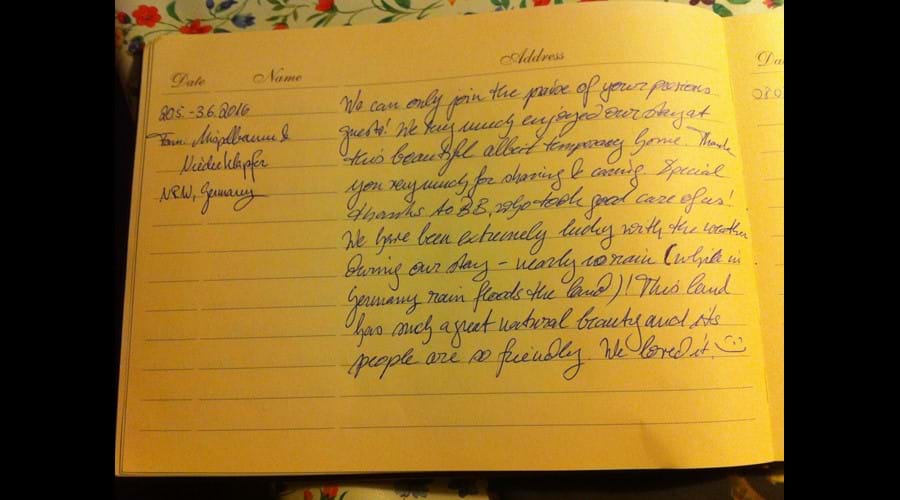 Date Name Address Da
20.5.-3.6.2016
Fam. Mispelbaum &
Niederklapfer
NRW, Germany
We can only join the praise of your previous
guests! We very much enjoyed our stay at
this beautiful albeit temporary home. Thank
you very much for sharing & caring. Special
thanks to BB, who took good care of us!
We have been extremely lucky with the weather
during our stay - nearly no rain (while in
Germany rain floods the land)! This land
has such a great natural beauty and its
people are so friendly. We loved it.